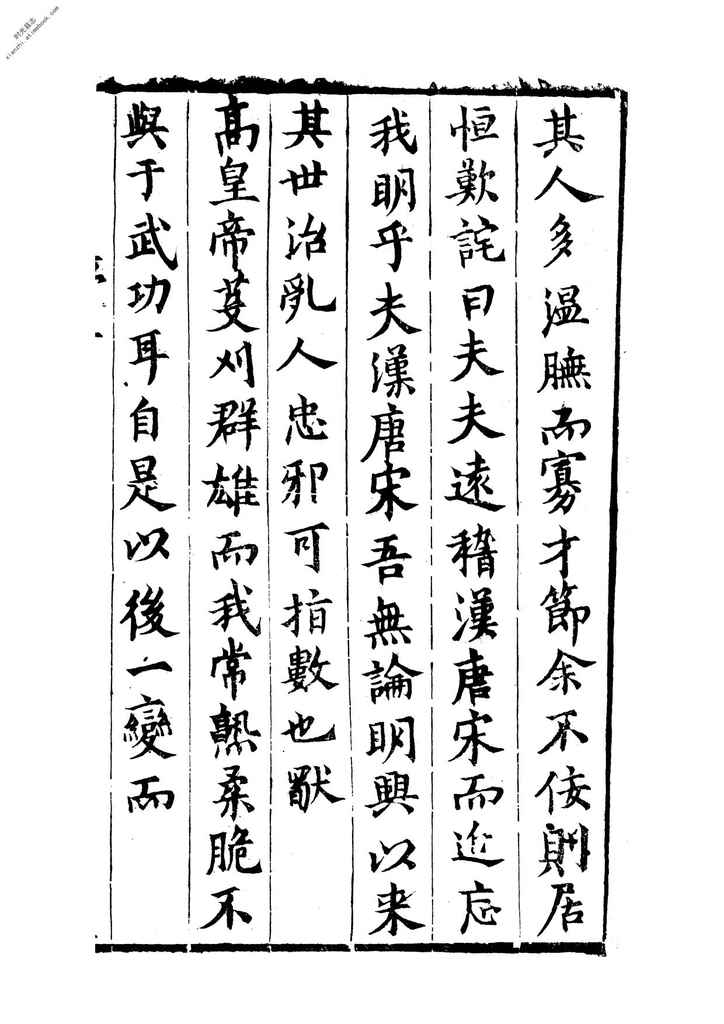 其人多温膴而寡才節余不佞則居
恒歎詫曰夫夫遠稽漢唐宋而近忘
我明乎夫漢唐宋吾無論明興以来
其世治亂人忠邪可指數也猒
髙皇帝芟刈群雄而我常熟柔脆不
與于武功耳自是以後一變而
时光县志
xianzhi.atimebook.com